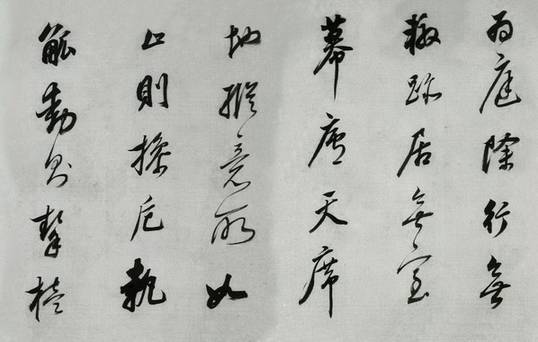 為庭除行無
轍跡居無室
幕廬天席
地縱意所如
止則操卮執
觚動則挈榼